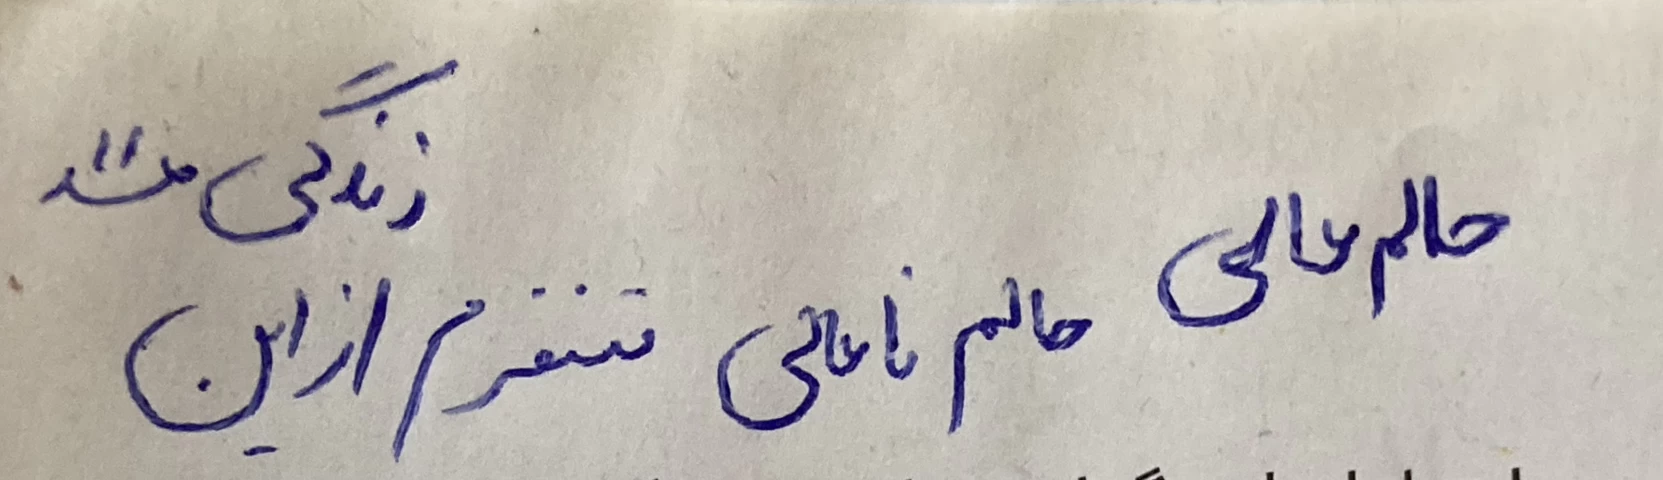 حالم عالی
حالم نا عالی متنفرم از این
زندگی